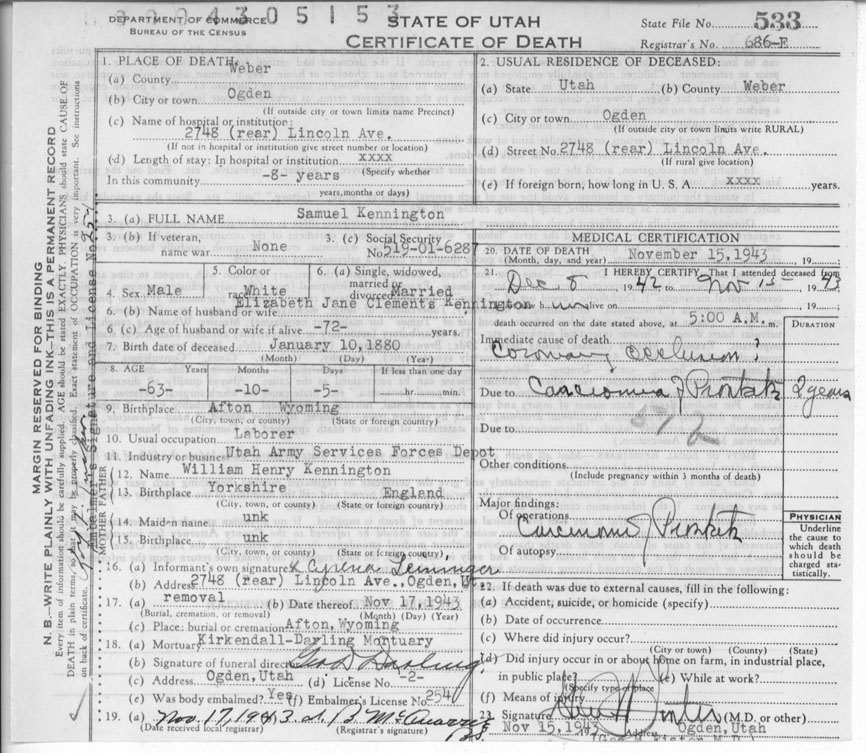 0004305153
DEPARTMENT OF COMMERCE
BUREAU OF THE CENSUS
STATE OF UTAH
CERTIFICATE OF DEATH
State File No. 533
Registrar's No. 686-E
MARGIN RESERVED FOR BINDING
N. B.—WRITE PLAINLY WITH UNFADING INK—THIS IS A PERMANENT RECORD
Every item of information should be carefully supplied. AGE should be stated EXACTLY. PHYSICIANS should state CAUSE OF
DEATH in plain terms, so that it may be properly classified. Exact statement of OCCUPATION is very important. See instructions
on back of certificate.
Embalmer's Signature and License No. 254
1. PLACE OF DEATH:
(a) County Weber
(b) City or town Ogden
(If outside city or town limits name Precinct)
(c) Name of hospital or institution:
2748 (rear) Lincoln Ave.
(If not in hospital or institution give street number or location)
(d) Length of stay: In hospital or institution xxxx
(Specify whether
In this community -8- years
years, months or days)
2. USUAL RESIDENCE OF DECEASED:
(a) State Utah (b) County Weber
(c) City or town Ogden
(If outside city or town limits write RURAL)
(d) Street No. 2748 (rear) Lincoln Ave.
(If rural give location)
(e) If foreign born, how long in U. S. A xxxx years.
3. (a) FULL NAME Samuel Kennington
3. (b) If veteran,
name war None
3. (c) Social Security
No. 519-01-6287
4. Sex Male
5. Color or
race White
6. (a) Single, widowed,
married or
divorced Married
6. (b) Name of husband or wife Elizabeth Jane Clements Kennington
6. (c) Age of husband or wife if alive -72- years.
7. Birth date of deceased January 10, 1880
(Month) (Day) (Year)
8. AGE Years Months Days If less than one day
-63- -10- -5- hr. min.
9. Birthplace Afton Wyoming
(City, town, or county) (State or foreign country)
10. Usual occupation Laborer
11. Industry or busines Utah Army Services Forces Depot
FATHER
12. Name William Henry Kennington
13. Birthplace Yorkshire England
(City, town, or county) (State or foreign country)
MOTHER
14. Maiden name unk
15. Birthplace unk
(City, town, or county) (State or foreign country)
16. (a) Informant's own signature
(b) Address 2748 (rear) Lincoln Ave., Ogden, Ut.
17. (a) removal (b) Date thereof Nov 17, 1943
(Burial, cremation, or removal) (Month) (Day) (Year)
(c) Place: burial or cremation Afton, Wyoming
18. (a) Mortuary Kirkendall-Darling Mortuary
(b) Signature of funeral director Geo D Darling
(c) Address Ogden, Utah (d) License No. -2-
(e) Was body embalmed? Yes (f) Embalmer's License No. 254
19. (a) Nov. 17, 1943
(Date received local registrar) (Registrar's signature)
MEDICAL CERTIFICATION
20. DATE OF DEATH November 15, 1943
(Month, day, and year) 19
21. I HEREBY CERTIFY That I attended deceased from
Dec 8 1942 to Nov 15 1943
saw h im alive on 19
death occurred on the date stated above, at 5:00 A.M. m.
DURATION
Immediate cause of death
Coronary occlusion ?
Due to Carcinoma of Prostate 2 years
Due to
Other conditions
(Include pregnancy within 3 months of death)
Major findings:
Of operations
Carcinoma of Prostate
Of autopsy
PHYSICIAN
Underline
the cause to
which death
should be
charged sta-
tistically.
22. If death was due to external causes, fill in the following:
(a) Accident, suicide, or homicide (specify)
(b) Date of occurrence
(c) Where did injury occur?
(City or town) (County) (State)
(d) Did injury occur in or about home on farm, in industrial place,
in public place? (e) While at work?
(Specify type of place
(f) Means of injury
23. Signature (M.D. or other)
Nov 15, 1943 Ogden, Utah